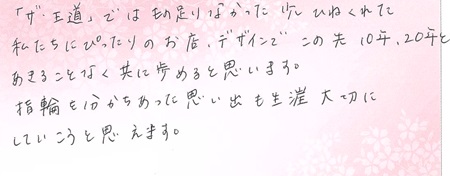 「ザ・王道」では物足りなかった少しひねくれた
私たちにぴったりのお店、デザインで この先10年、20年と
あきることなく共に歩めると思います。
指輪を分かちあった思い出も生涯大切に
していこうと思えます。